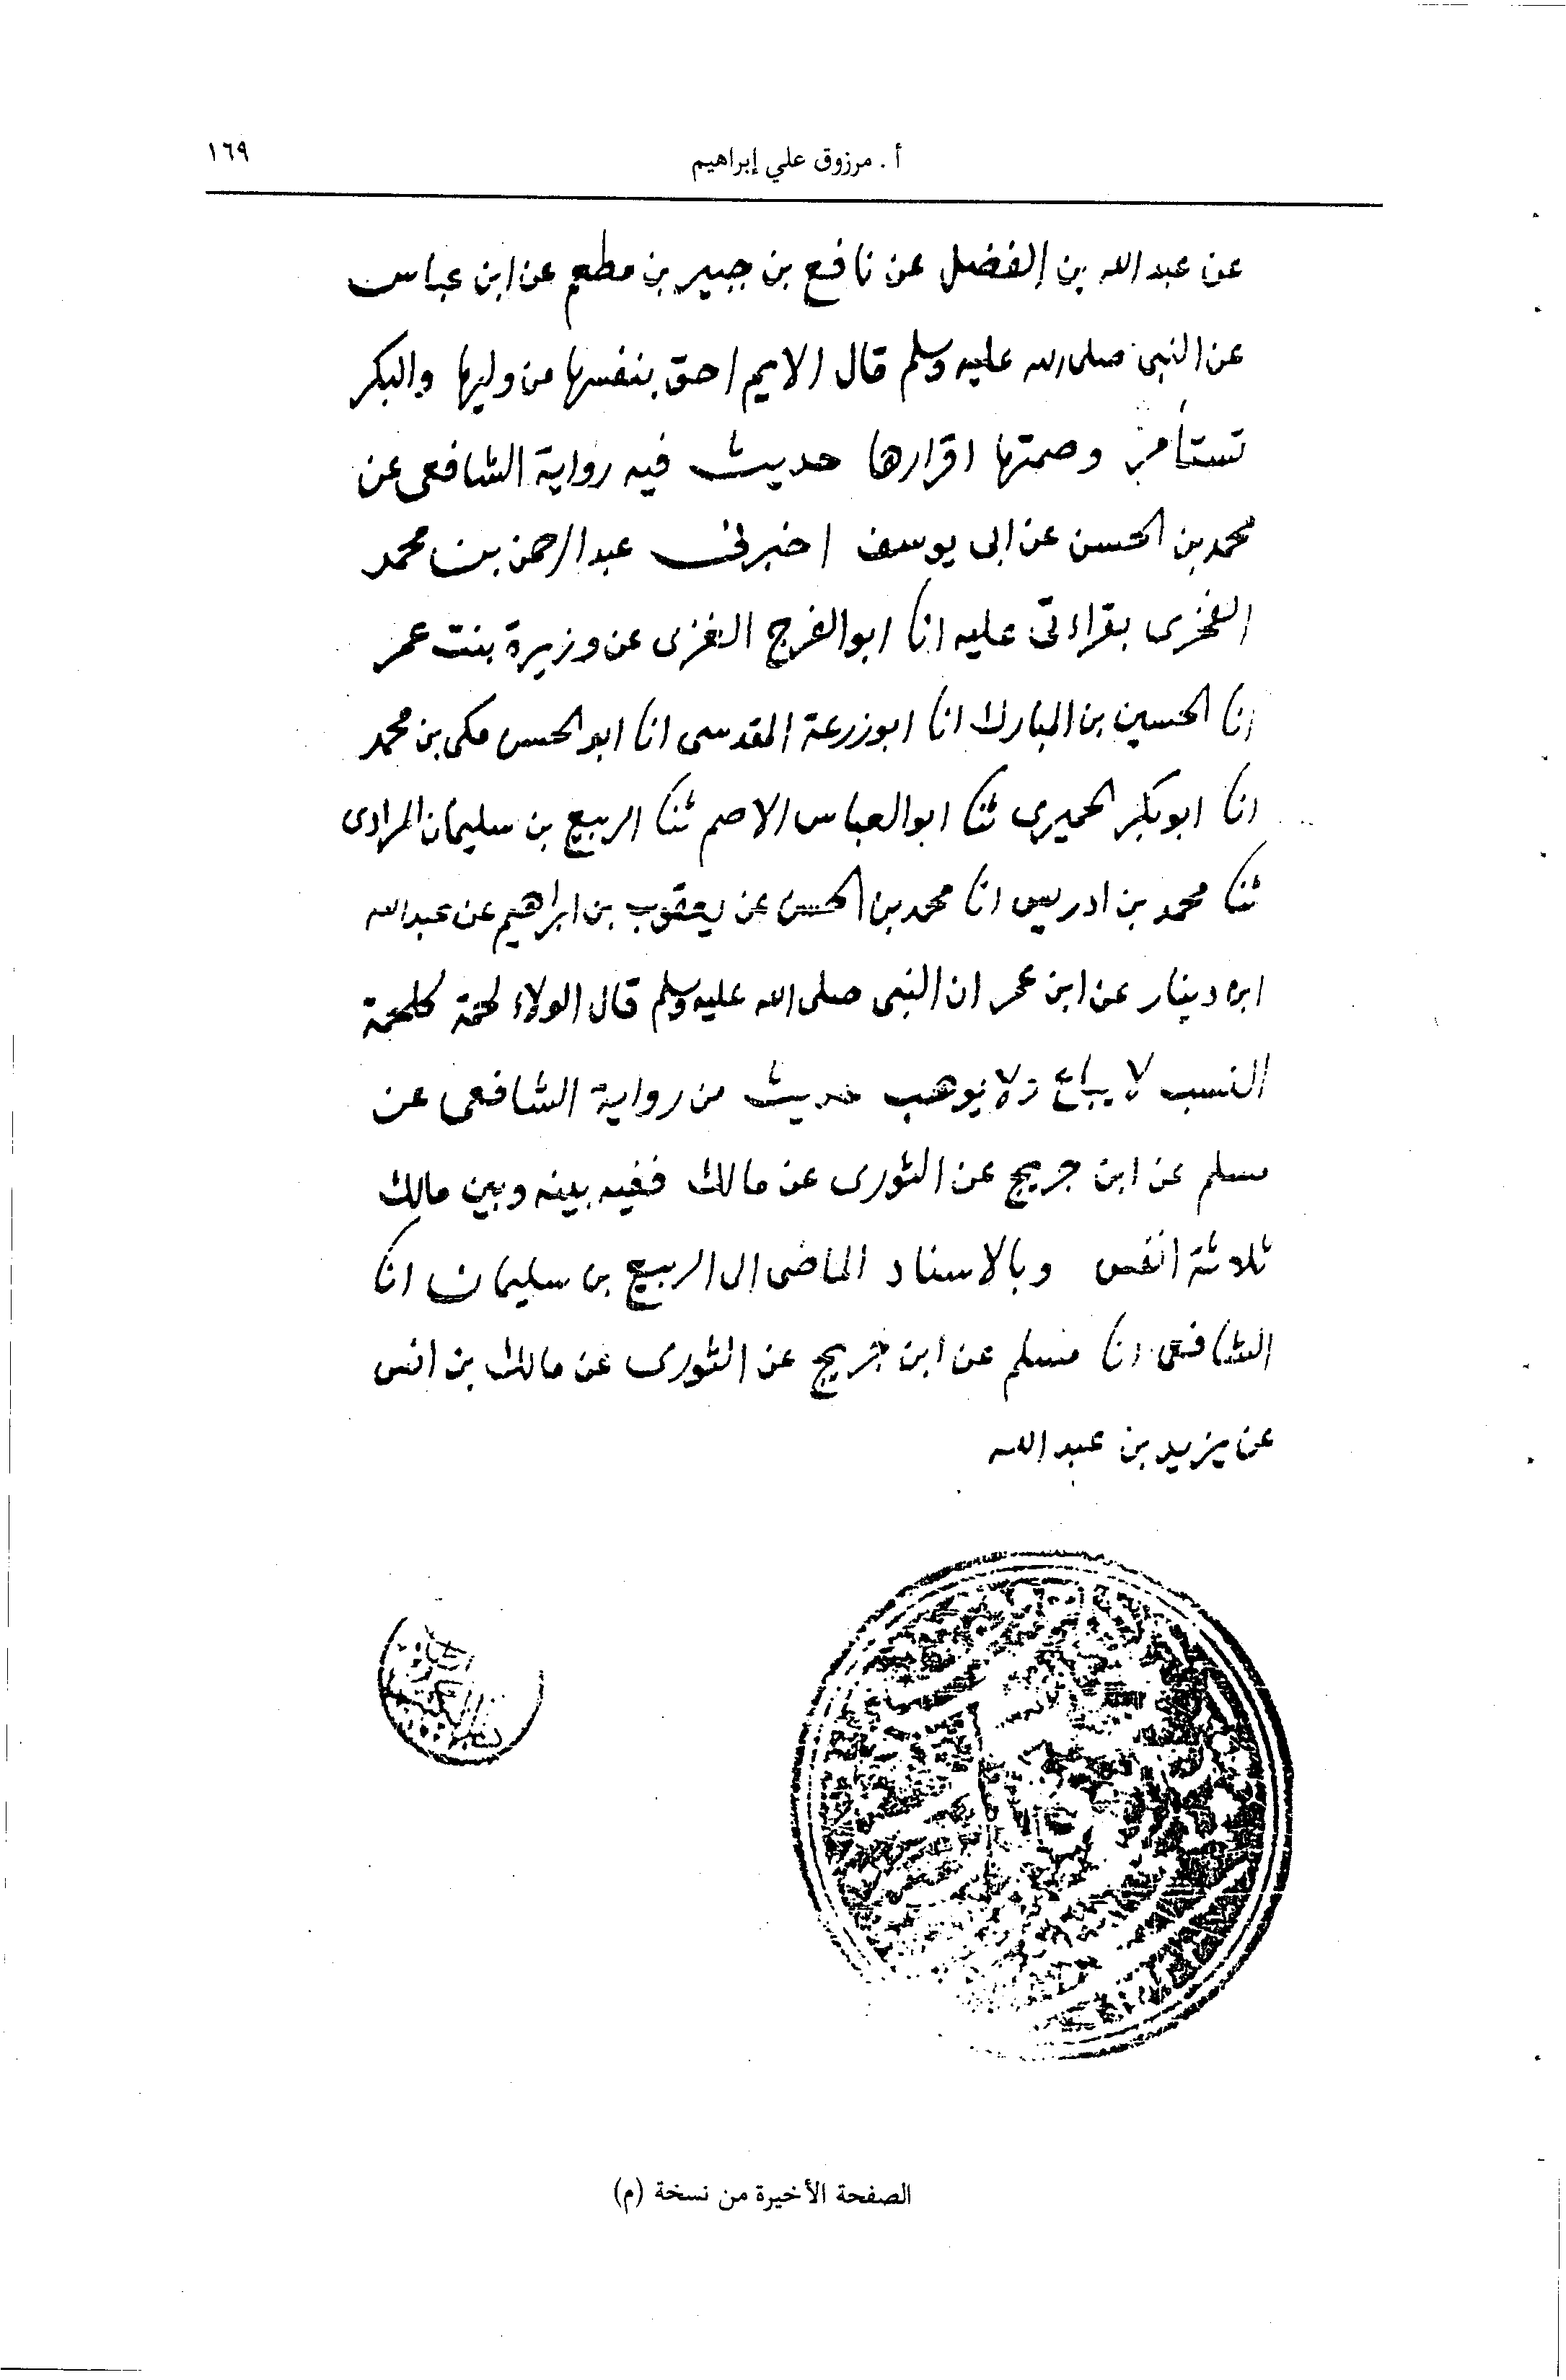 أ. مرزوق علي إبراهيم
١٦٩
عن عبد الله بن الفضل عن نافع بن جبير بن مطعم عن ابن عباس
عن النبى صلى الله عليه وسلم قال الايم احق بنفسها من وليها والبكر
تستأمر وصمتها اقرارها حديث فيه رواية الشافعى عن
محمد بن الحسن عن ابى يوسف اخبرنى عبد الرحمن بن محمد
الفخرى بقراءتى عليه انا ابو الفرج الغزى عن وزيرة بنت عمر
انا الحسين بن المبارك انا ابو زرعة المقدسى انا ابو الحسن مكى بن محمد
انا ابو بكر الحيرى ثنا ابو العباس الاصم ثنا الربيع بن سليمان المرادى
ثنا محمد بن ادريس انا محمد بن الحسن عن يعقوب بن ابراهيم عن عبد الله
ابن دينار عن ابن عمر ان النبى صلى الله عليه وسلم قال الولاء لحمة كلحمة
النسب لا يباع ولا يوهب حديث من رواية الشافعى عن
مسلم عن ابن جريج عن الثورى عن مالك ففيه بينه وبين مالك
ثلاثة انفس وبالاسناد الماضى الى الربيع بن سليمان انا
الشافعى انا مسلم عن ابن جريج عن الثورى عن مالك بن انس
عن يزيد بن عبد الله
الصفحة الأخيرة من نسخة (م)